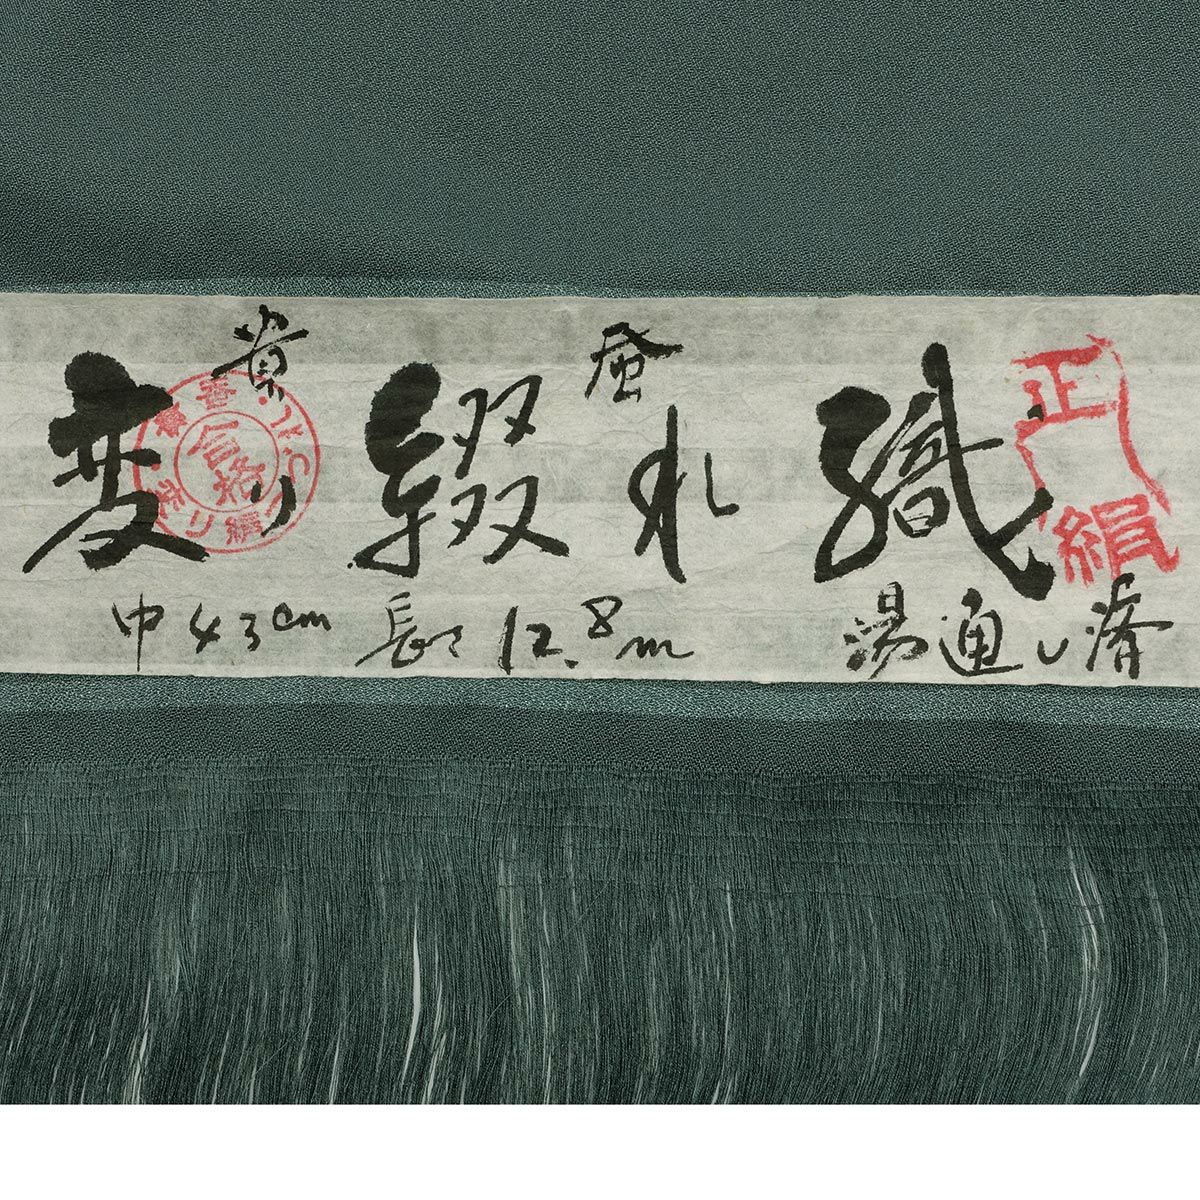 貴 蚕
変り 綴れ 織
巾43cm 長さ12.8m 湯通し済
合格
正絹